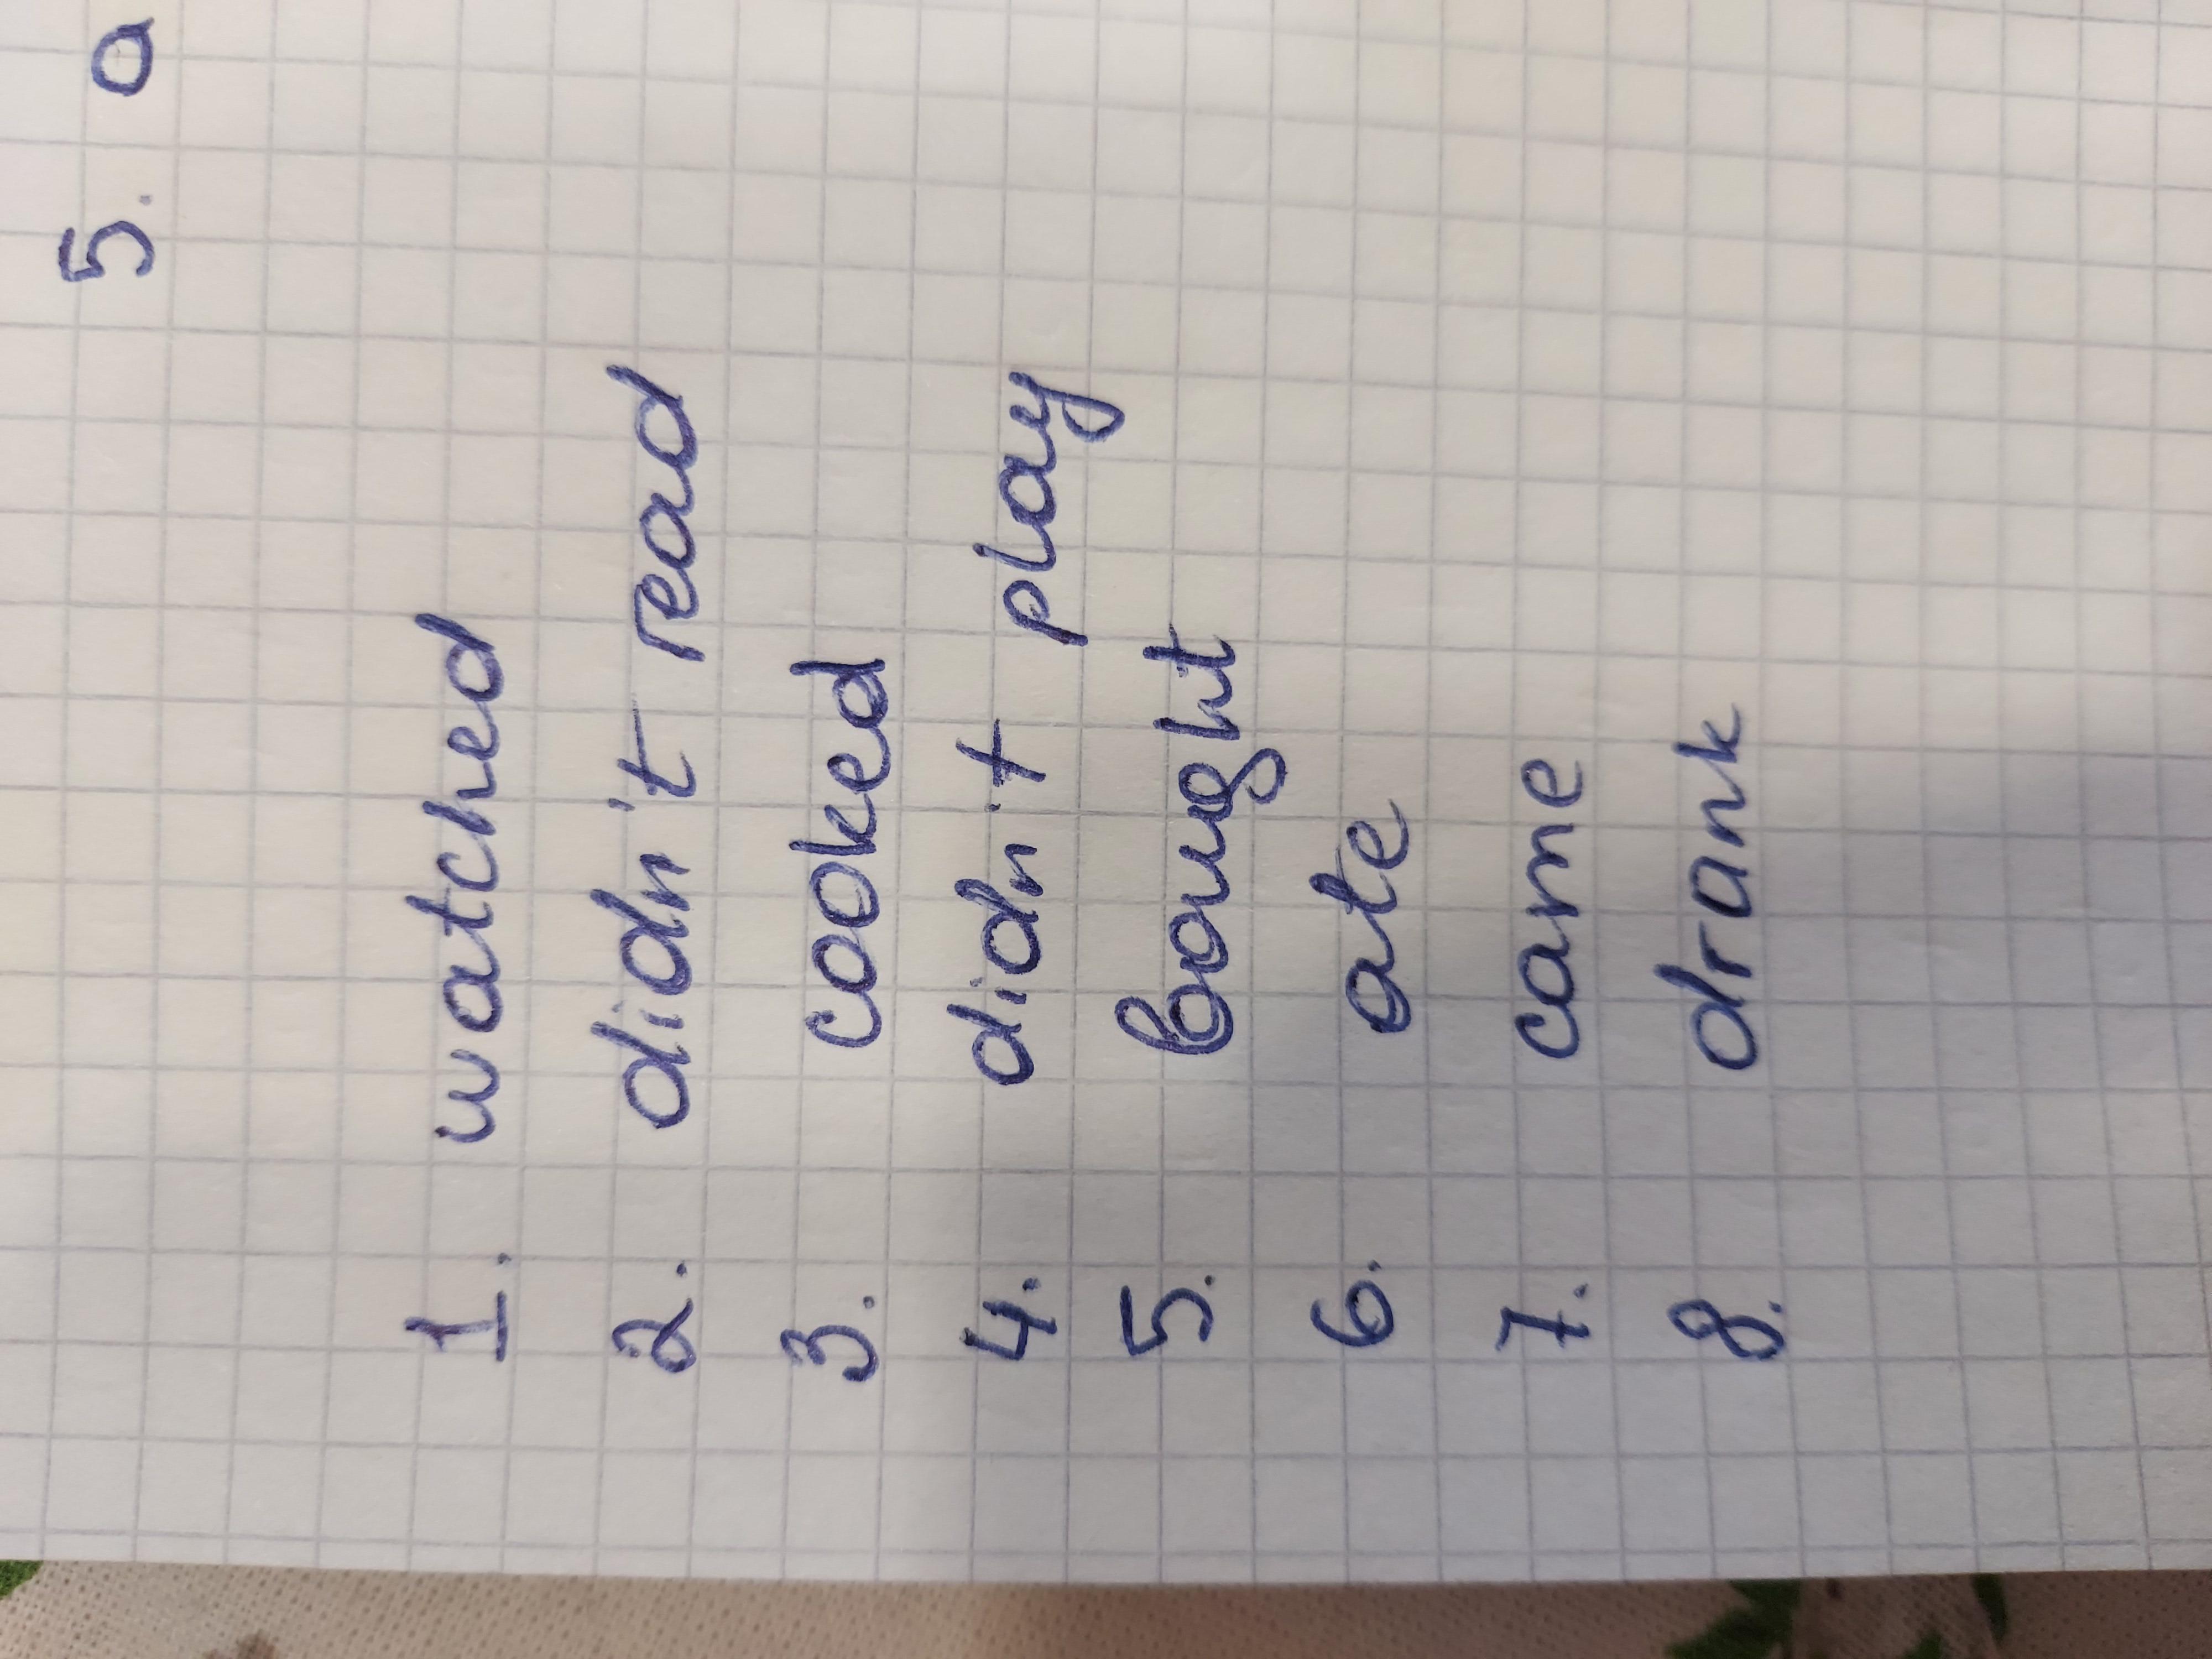 5. a
1. watched
2. didn't read
3. cooked
4. didn't play
5. bought
6. ate
7. came
8. drank